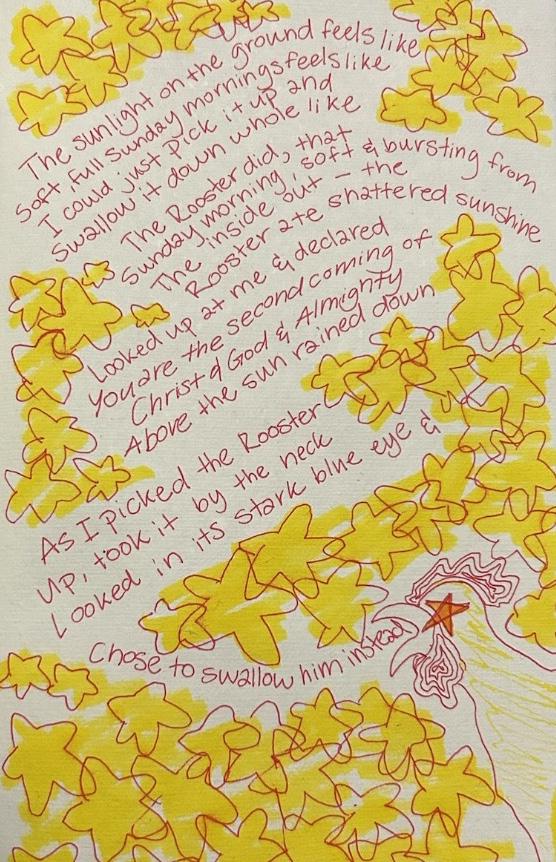 The sunlight on the ground feels like
Soft, full Sunday mornings feels like
I could just Pick it up and
swallow it down whole like
The Rooster did, that
Sunday morning, soft & bursting from
The inside out – the
Rooster ate shattered sunshine
Looked up at me & declared
You are the second coming of
Christ & God & Almighty
Above the sun rained down
As I picked the Rooster
Up, took it by the neck
Looked in its stark blue eye &
Chose to swallow him instead